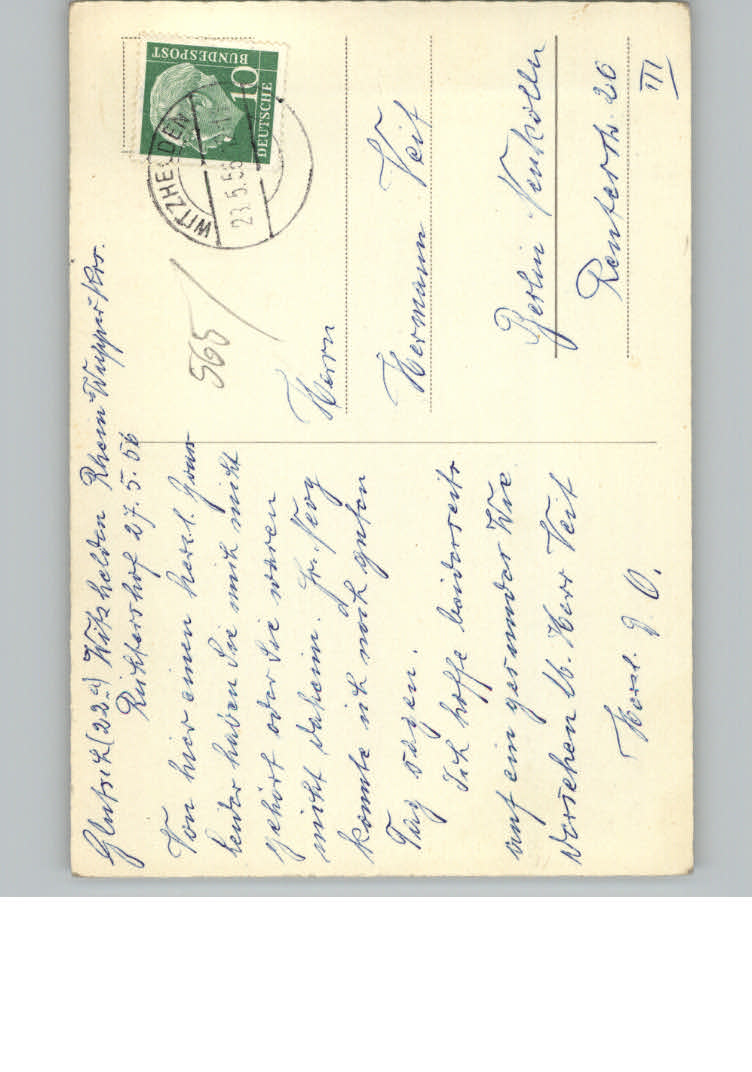 (22a) Witzhelden Rhein-Wupper-Krs.
27.5.56
Von hier einen herzl. Gruss
leider haben Sie mich nicht
gehört oder Sie waren
nicht daheim. Fr.
konnte ich noch guten
Tag sagen.
Ich hoffe beiderseits
auf ein gesundes Wie
dersehen lb. Herr Veit
Herzl. J. O.
DEUTSCHE
BUNDESPOST
10
WITZHELDEN
565
Herrn
Hermann Veit
Berlin Neukölln
Reuterstr. 26
III